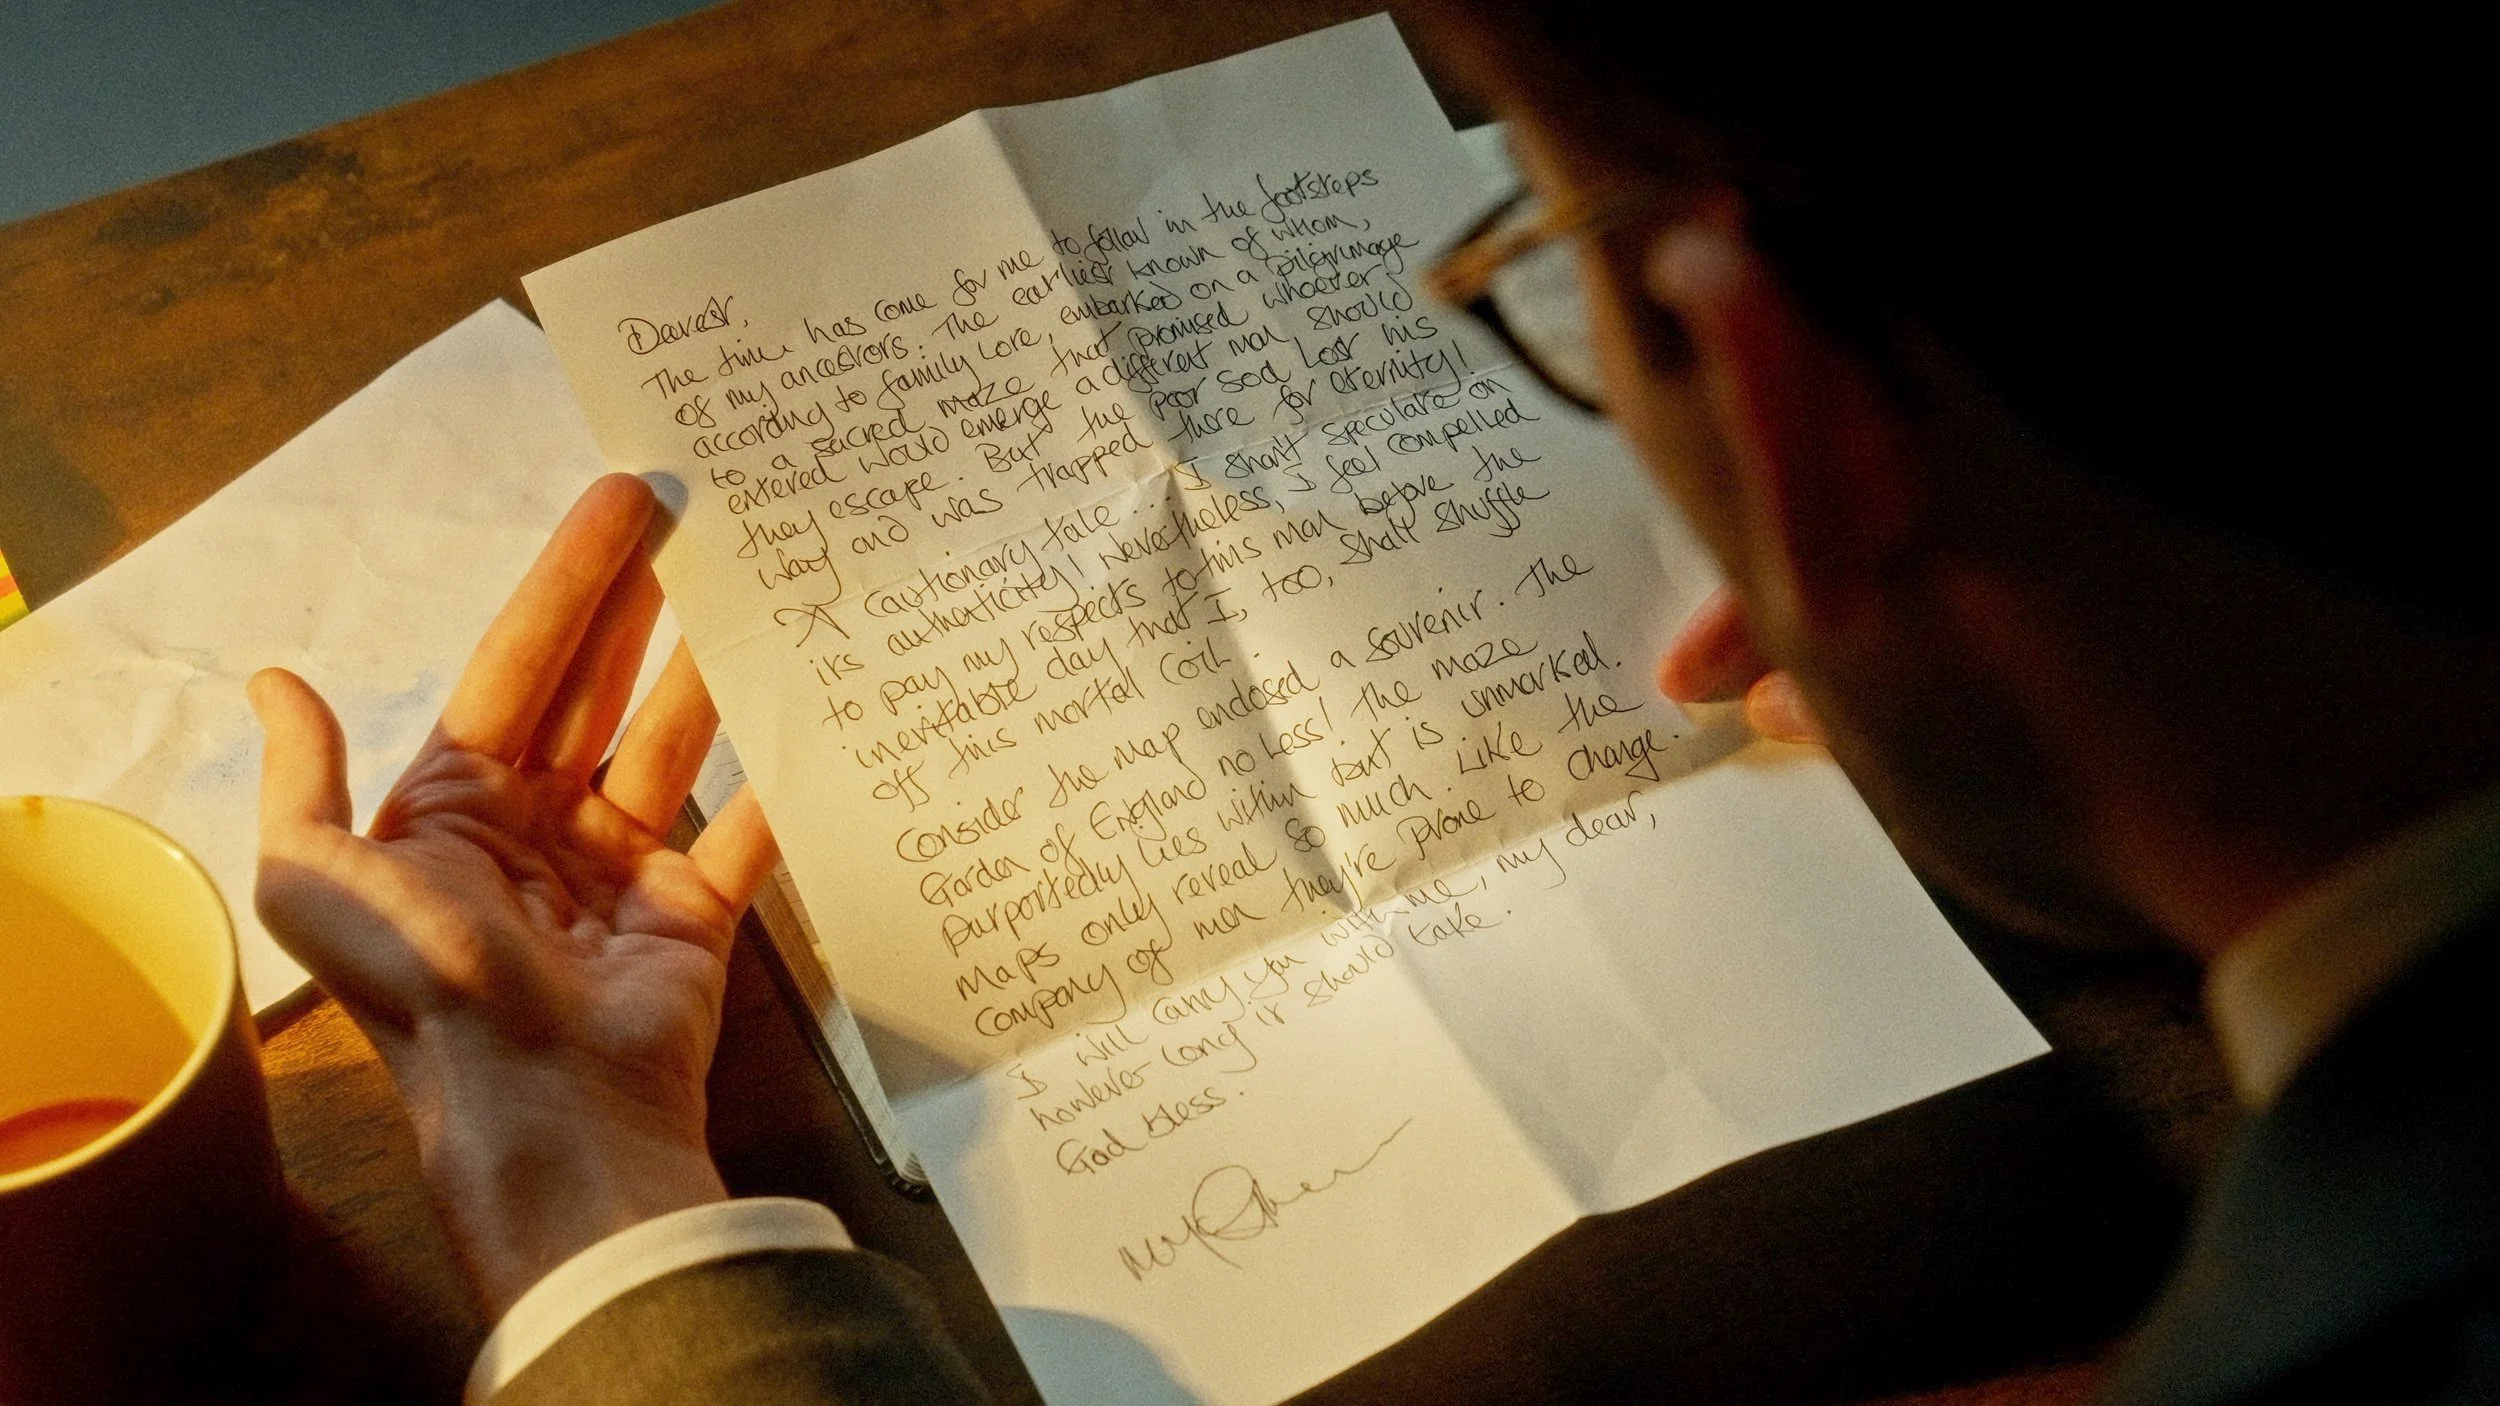 Dearest,
The time has come for me to follow in the footsteps
of my ancestors. The earliest known of whom,
according to family lore, embarked on a pilgrimage
to a sacred maze that promised whoever
entered would emerge a different man should
they escape. But the poor sod lost his
way and was trapped there for eternity!
A cautionary tale... I shan't speculate on
its authenticity! Nevertheless, I feel compelled
to pay my respects to this man before the
inevitable day that I, too, shall shuffle
off this mortal coil.
Consider the map enclosed a souvenir. The
Garden of England no less! The maze
purportedly lies within but is unmarked.
Maps only reveal so much. Like the
company of men they're prone to change.
I will carry you with me, my dear,
however long it should take.
God bless.